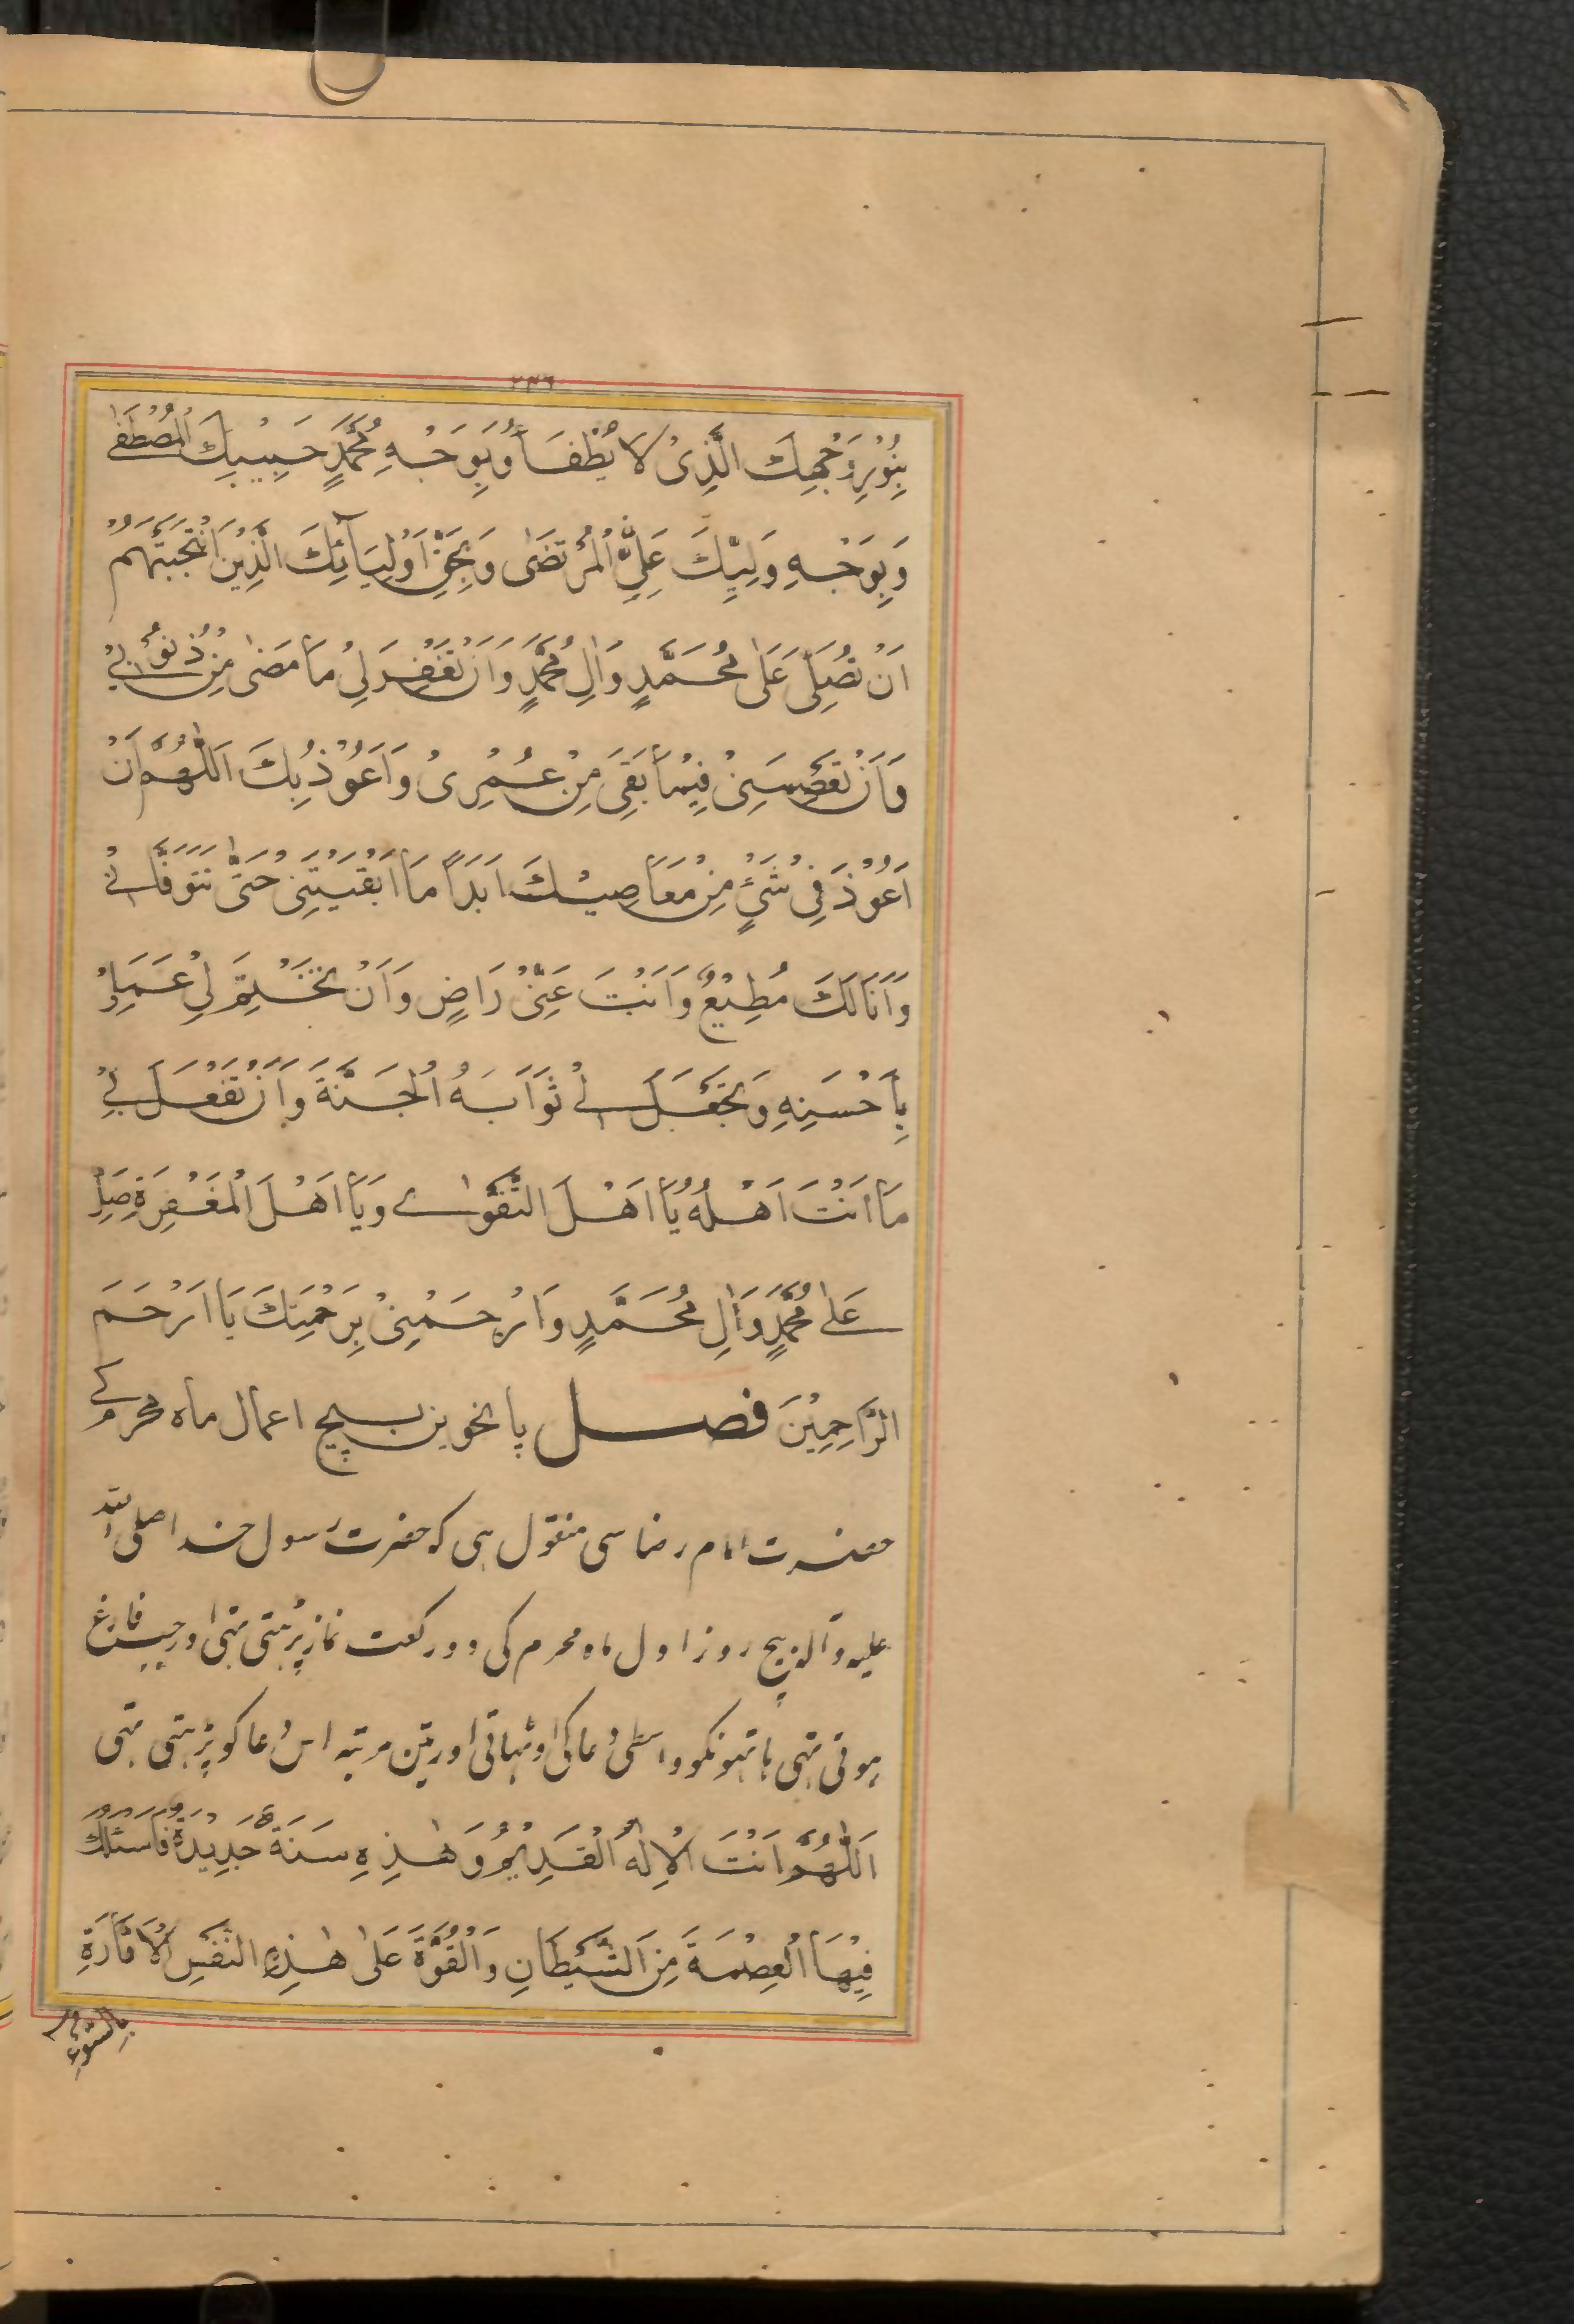 ۲۴۶
بِنُوْرِ وَجْهِكَ الَّذِیْ لَا یُطْفَأُ وَبِوَجْهِ مُحَمَّدٍ حَبِیْبِكَ الْمُصْطَفٰے
وَبِوَجْهِ وَلِیِّكَ عَلِیٍّ الْمُرْتَضٰی وَبِحَقِّ اَوْلِیَآئِكَ الَّذِیْنَ انْتَجَبْتَهُمْ
اَنْ تُصَلِّیَ عَلٰی مُحَمَّدٍ وَاٰلِ مُحَمَّدٍ وَاَنْ تَغْفِرَ لِیْ مَا مَضٰی مِنْ ذُنُوْبِیْ
وَاَنْ تَعْصِمَنِیْ فِیْمَا بَقِیَ مِنْ عُمُرِیْ وَاَعُوْذُ بِكَ اَللّٰهُمَّ اَنْ
اَعُوْدَ فِیْ شَیْءٍ مِنْ مَعَاصِیْكَ اَبَدًا مَا اَبْقَیْتَنِیْ حَتّٰی تَتَوَفَّانِیْ
وَاَنَا لَكَ مُطِیْعٌ وَاَنْتَ عَنِّیْ رَاضٍ وَاَنْ تَخْتِمَ لِیْ عَمَلِیْ
بِاَحْسَنِهِ وَتَجْعَلَ لِیْ ثَوَابَهُ الْجَنَّةَ وَاَنْ تَفْعَلَ بِیْ
مَا اَنْتَ اَهْلُهُ یَا اَهْلَ التَّقْوٰے وَیَا اَهْلَ الْمَغْفِرَةِ صَلِّ
عَلٰے مُحَمَّدٍ وَاٰلِ مُحَمَّدٍ وَارْحَمْنِیْ بِرَحْمَتِكَ یَا اَرْحَمَ
الرَّاحِمِیْنَ فصل پانچوین بیچ اعمال ماہ محرم کے
حضرت امام رضا سی منقول ہی کہ حضرت رسول خدا صلی اللہ
علیہ وآلہ بیچ روز اول ماہ محرم کی دو رکعت نماز پڑہتی تہی اور جب فارغ
ہوتی تہی ہاتہونکو واسطی دعا کی اوٹہاتی اور تین مرتبہ اس دعا کو پڑہتی تہی
اَللّٰهُمَّ اَنْتَ الْاِلٰهُ الْقَدِیْمُ وَهٰذِهِ سَنَةٌ جَدِیْدَةٌ فَاَسْئَلُكَ
فِیْهَا الْعِصْمَةَ مِنَ الشَّیْطَانِ وَالْقُوَّةَ عَلٰی هٰذِهِ النَّفْسِ الْاَمَّارَةِ
بِالسُّوْءِ